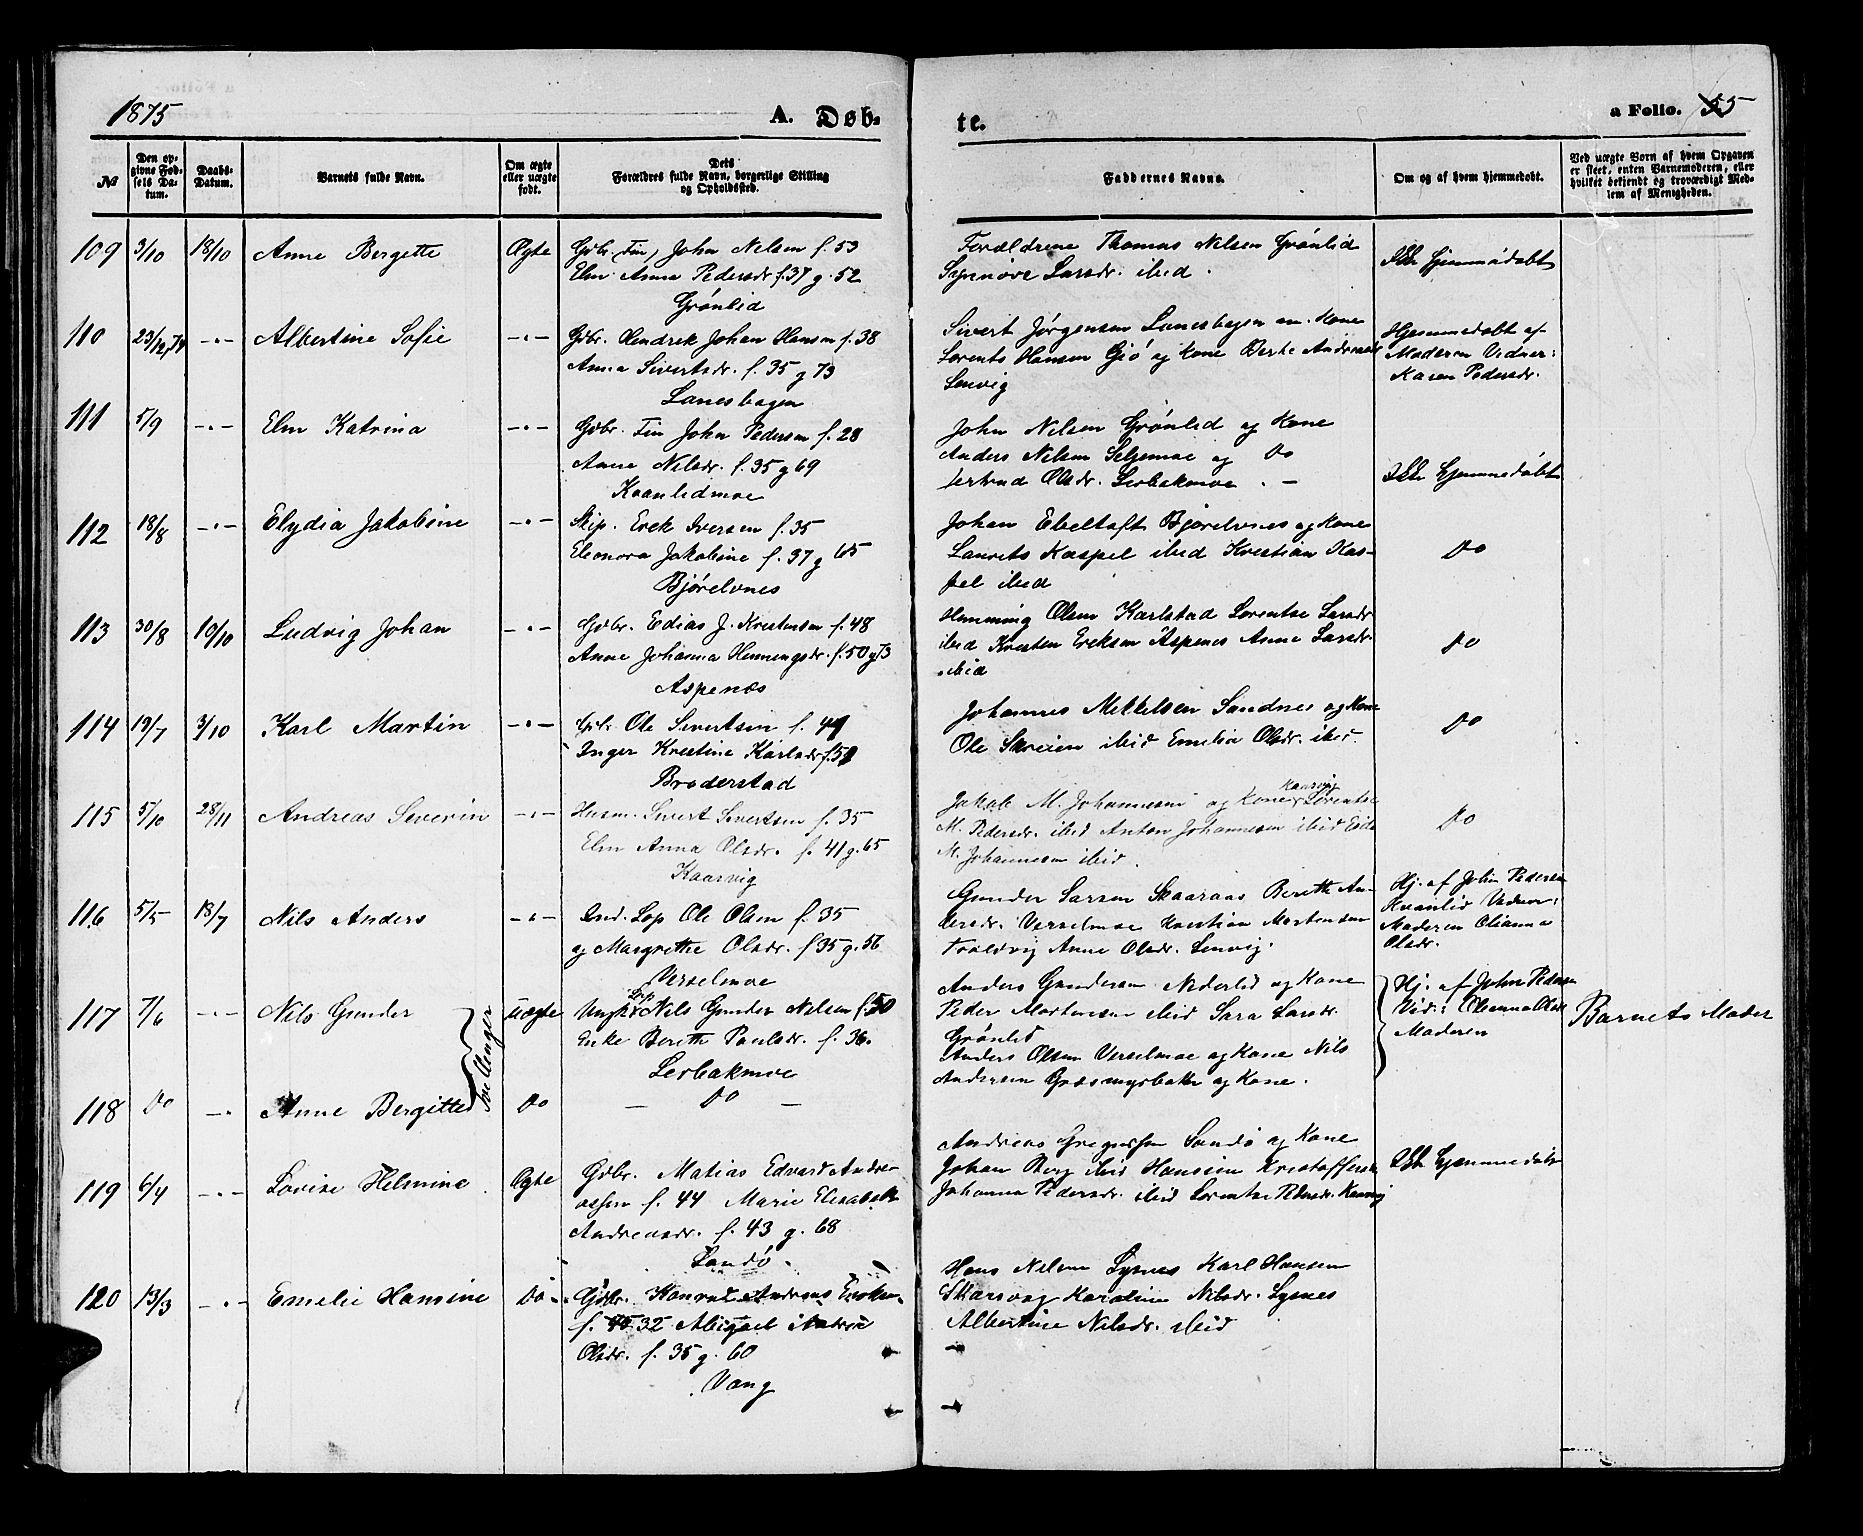 1875 A. Døb- te. a Folio. 55
№
Den opgivne Fødsels Datum.
Daabs-Datum.
Barnets fulde Navn.
Om ægte eller uægte født.
Dets Forældres fulde Navn, borgerlige Stilling og Opholdssted.
Faddernes Navne.
Om og af hvem hjemmedøbt.
Ved uægte Børn af hvem Opgaven er skeet, enten Barnemoderen, eller hvilket bekjendt og troværdigt Medlem af Menigheden.
109 3/10 18/10 Anne Bergette Ægte Gdbr. Fin, John Nilsen f. 53
Elen Anna Pedersdr f. 37 g. 52
Grønlid
Forældrene Thomas Nilsen Grønlid
Synnøve Larsdr. ibid.
Ikke hjemmedøbt
110 23/12,74 -"- Albertine Sofie -"- Gdbr. Hendrek Johan Hansen f. 38
Anna Sivertsdr. f. 35 g 73
Lanesbagen
Sivert Jørgensen Lanesbagen og Kone
Lorents Hansen Gjø og Kone Berte Andreasdr
Lenvig
Hjemmedøbt af
Moderen Vidner:
Karen Pedersdr.
111 5/9 -"- Elen Katrina -"- Gdbr. Fin John Pedersen f. 28
Anne Nilsdr. f. 35 g 69
Kvanlidmoe
John Nilsen Grønlid og Kone
Anders Nilsen Seljemoe og Do
Olsdr. Lerbakmoe. -
Ikke hjemmedøbt
112 18/8 -"- Elydia Jakobine -"- Skip. Erek Iversen f. 35
Eleonora Jakobine f. 37 g 65
Bjørelvnes
Johan Ebeltoft Bjørelvnes og Kone
Laurets Kaspel ibid Kristian Kas-
pel ibid
Do
113 30/8 10/10 Ludvig Johan -"- Gdbr. Edias J. Kristensen f. 48
Anne Johanna Henningsdr. f. 50 g 73
Aspenæs
Henning Olsen Karlstad Lorentse Larsdr
ibid Kristen Ereksen Aspenes Anne Larsdr.
ibid
Do
114 19/7 3/10 Karl Martin -"- Gdbr. Ole Sivertsen f. 41
Inger Krestine Karlsdr f. 51
Broderstad
Johannes Mikkelsen Sandnes og Kone
Ole Skreien ibid Emelia Olsdr. ibid.
Do
115 5/10 28/11 Andreas Severin -"- Husm. Sivert Sivertsen f. 35
Elen Anna Olsdr. f. 41 g. 65
Kaarvig
Jakob M. Johannesen og Kone Kaarvig Lorentse
M. Pedersdr. ibid Anton Johannesen ibid
M. Johannesen ibid.
Do
116 5/5 18/7 Nils Anders -"- Ind. Lap Ole Olsen f. 35
og Margrethe Olsdr. f. 35 g. 56
Vesselmoe
Gunder Larsen Skaaraas Bereth An-
dersdr. Vesselmoe Kristian Mortensen
Troldvig Anne Olsdr. Lenvig.
Hj. af John Pedersen
Kvanlid Vidner:
Moderen Olianna
Olsdr.
117 7/6 -"- Nils Gunder uægte Ungkr. Lap Nils Gunder Nilsen f. 50
Enke Bereth Paulsdr. f. 36.
Lerbakmoe
Tvillinger
Anders Gundersen Nederlid og Kone
Peder Mortensen ibid Sara Larsdr.
Grønlid
Anders Olsen Vesselmoe og Kone Nils
Andersen Græsmyrbakk og Kone.
Hj. af John Pedersen
Vid.: Olianna Olsdr
Moderen
Barnets Moder
118 Do -"- Anne Bergitte Do - Do -
119 6/4 -"- Lovise Helmine Ægte Gdbr. Matias Edvard Andre-
assen f. 44 Marie Elisabeth
Andreasdr. f. 43 g. 68
Sandø
Andreas Gregussen Sandø og Kone
Johan Berg ibid Hansine Kristoffersdr
Johanna Pedersdr. ibid Lorentse Pedersdr. Kaarvig
Ikke hjemmedøbt
120 13/3 -"- Emelie Hansine Do. Gdbr. Konrad Andreas Ereksen
f. 32 Abigael
Olsdr. f. 35 g. 60
Vang
Hans Nilsen Lysnes Karl Hansen
Skarsvag Karoline Nilsdr. Lysnes
Albertine Nilsdr. ibid